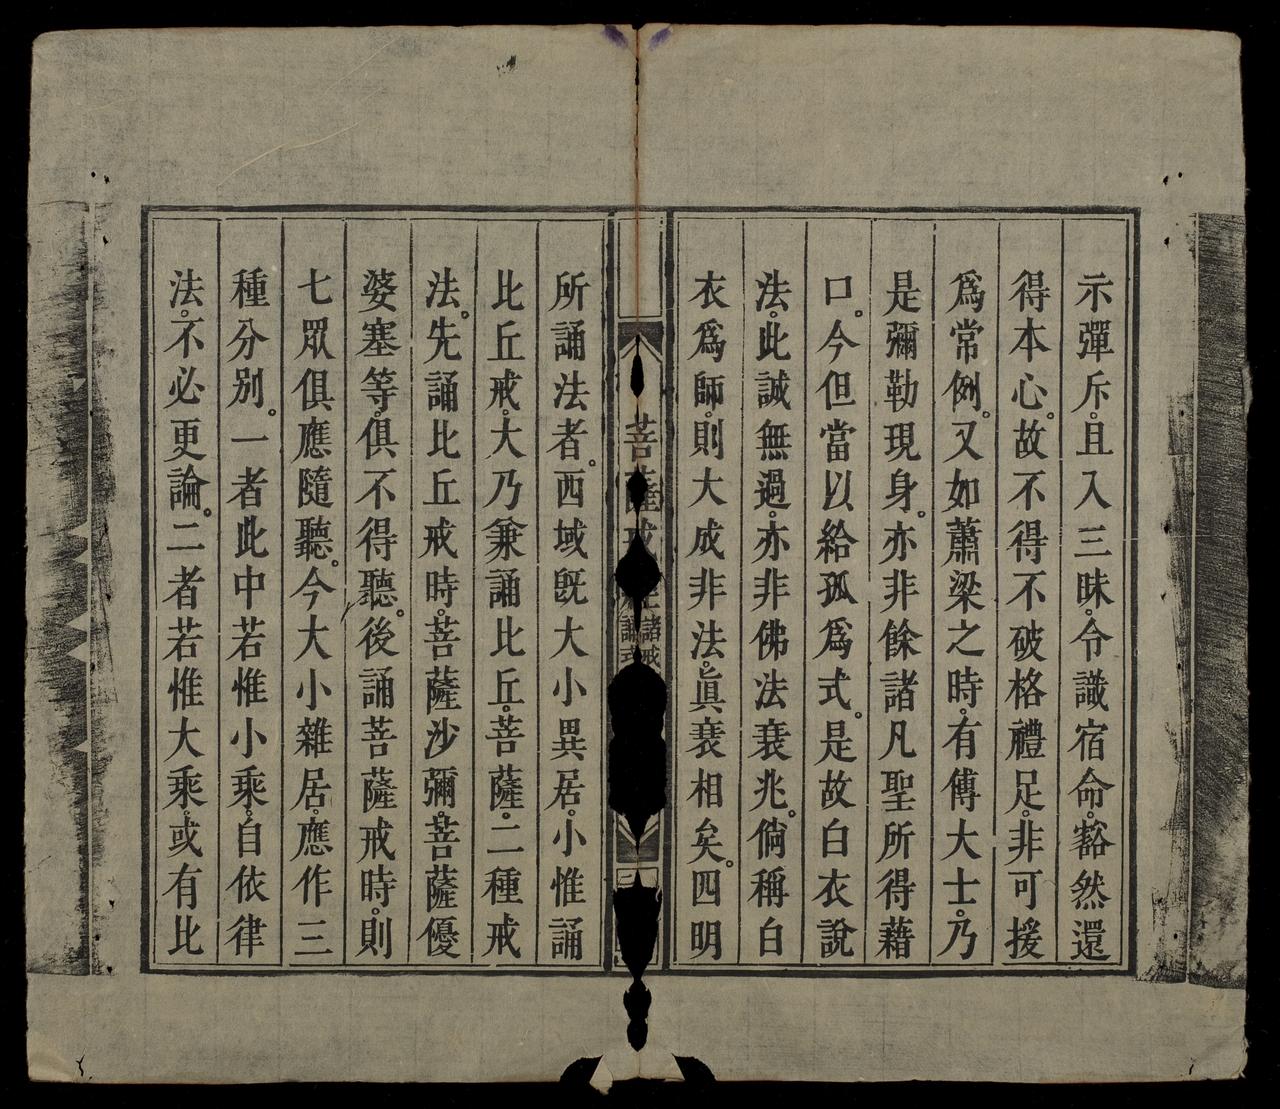 示彈斥。且入三昧。令識宿命。豁然還
得本心。故不得不破格禮足。非可援
爲常例。又如蕭梁之時。有傅大士。乃
是彌勒現身。亦非餘諸凡聖所得藉
口。今但當以給孤爲式。是故白衣說
法。此誠無過。亦非佛法衰兆。倘稱白
衣爲師。則大成非法。眞衰相矣。四明
菩薩戒
諸戒
誦式
所誦法者。西域旣大小異居。小惟誦
比丘戒。大乃兼誦比丘。菩薩。二種戒
法。先誦比丘戒時。菩薩沙彌。菩薩優
婆塞等。俱不得聽。後誦菩薩戒時。則
七眾俱應隨聽。今大小雜居。應作三
種分別。一者此中若惟小乘。自依律
法。不必更論。二者若惟大乘。或有比